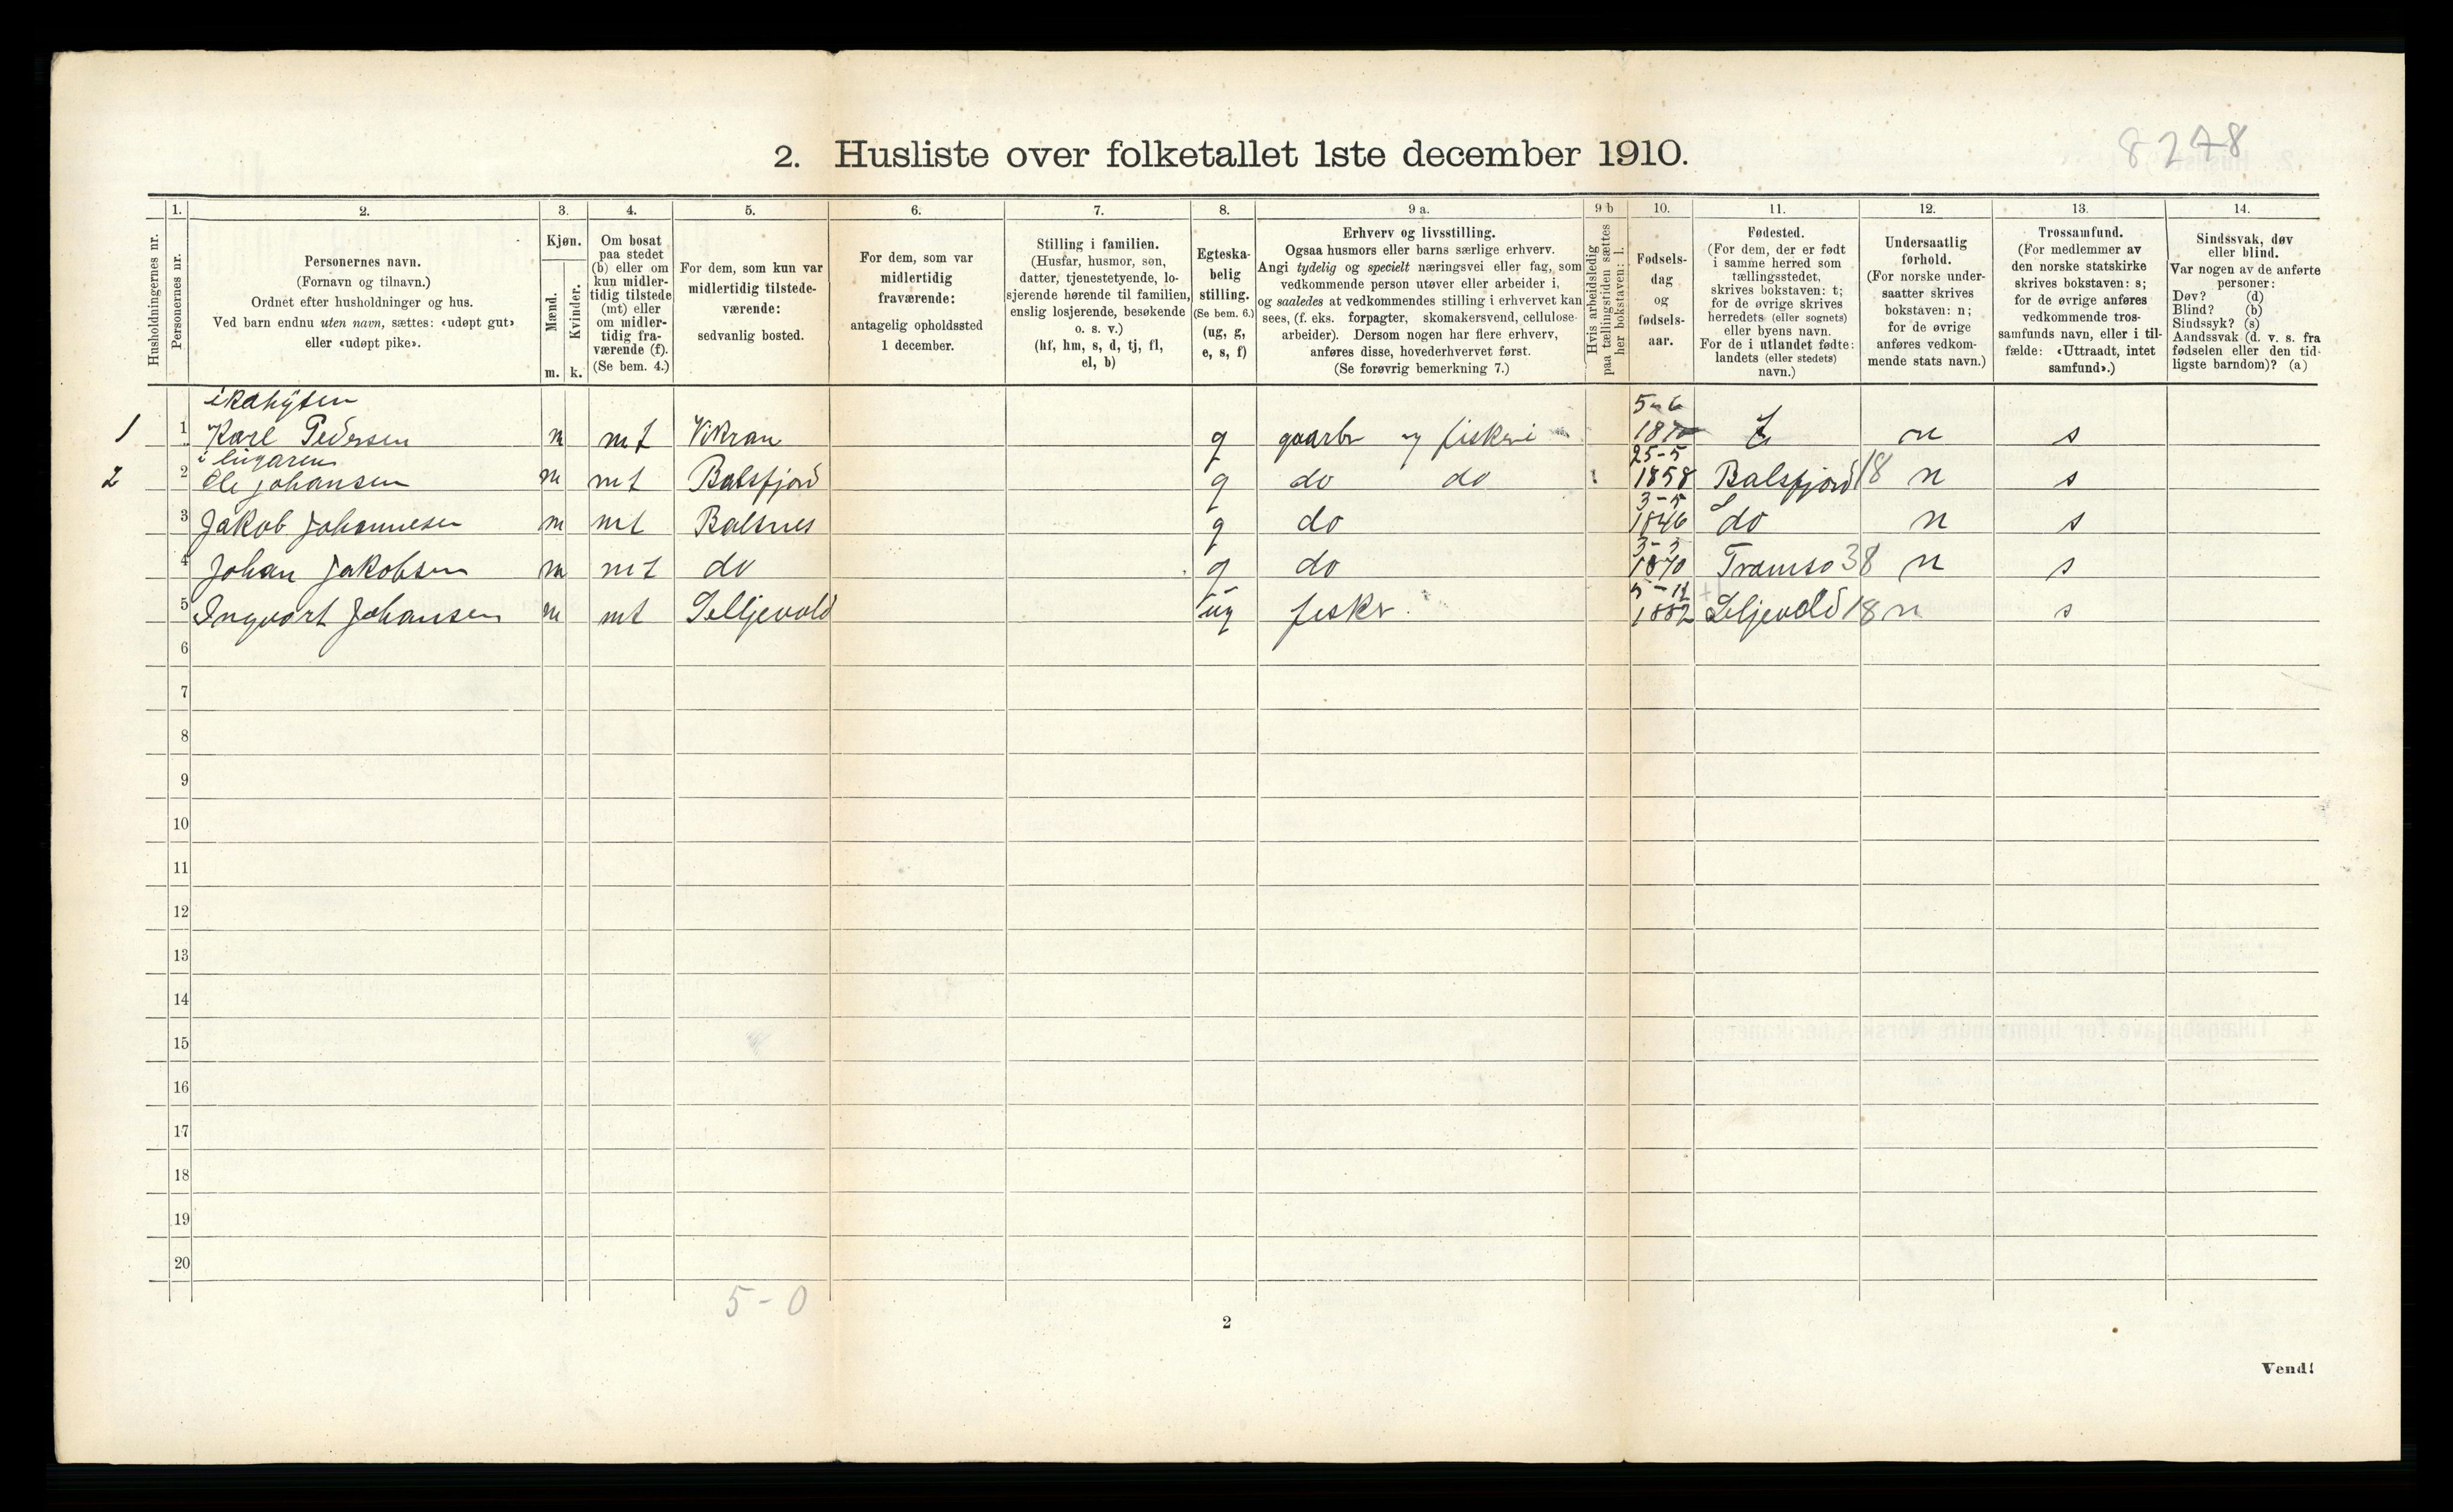 8278
2. Husliste over folketallet 1ste december 1910.
Husholdningernes nr.
1.
Personernes nr.
2.
Personernes navn.
(Fornavn og tilnavn.)
Ordnet efter husholdninger og hus.
Ved barn endnu uten navn, sættes: «udøpt gut»
eller «udøpt pike».
3.
Kjøn.
Mænd.
Kvinder.
m. k.
4.
Om bosat
paa stedet
(b) eller om
kun midler-
tidig tilstede
(mt) eller
om midler-
tidig fra-
værende (f).
(Se bem. 4.)
5.
For dem, som kun var
midlertidig tilstede-
værende:
sedvanlig bosted.
6.
For dem, som var
midlertidig
fraværende:
antagelig opholdssted
1 december.
7.
Stilling i familien.
(Husfar, husmor, søn,
datter, tjenestetyende, lo-
sjerende hørende til familien,
enslig losjerende, besøkende
o. s. v.)
(hf, hm, s, d, tj, fl,
el, b)
8.
Egteska-
belig
stilling.
(Se bem. 6.)
(ug, g,
e, s, f)
9 a.
Erhverv og livsstilling.
Ogsaa husmors eller barns særlige erhverv.
Angi tydelig og specielt næringsvei eller fag, som
vedkommende person utøver eller arbeider i,
og saaledes at vedkommendes stilling i erhvervet kan
sees, (f. eks. forpagter, skomakersvend, cellulose-
arbeider). Dersom nogen har flere erhverv,
anføres disse, hovederhvervet først.
(Se forøvrig bemerkning 7.)
9 b
Hvis arbeidsledig
paa tællingstiden sættes
her bokstaven: l.
10.
Fødsels-
dag
og
fødsels-
aar.
11.
Fødested.
(For dem, der er født
i samme herred som
tællingsstedet,
skrives bokstaven: t;
for de øvrige skrives
herredets (eller sognets)
eller byens navn.
For de i utlandet fødte:
landets (eller stedets)
navn.)
12.
Undersaatlig
forhold.
(For norske under-
saatter skrives
bokstaven: n;
for de øvrige
anføres vedkom-
mende stats navn.)
13.
Trossamfund.
(For medlemmer av
den norske statskirke
skrives bokstaven: s;
for de øvrige anføres
vedkommende tros-
samfunds navn, eller i til-
fælde: «Uttraadt, intet
samfund».)
14.
Sindssvak, døv
eller blind.
Var nogen av de anførte
personer:
Døv? (d)
Blind? (b)
Sindssyk? (s)
Aandssvak (d. v. s. fra
fødselen eller den tid-
ligste barndom)? (a)
5-6
1 1 Karl Pedersen m mt Vikran g gaarbr og fiskeri t n s
i lugaren 25-5
2 2 Ole Johansen m mt Balsfjord g do do 1858 Balsfjord 18 n s
3 Jakob Johannesen m mt Balsnes g do 1846 do n s
3-3
4 Johan Jakobsen m mt do g do 1870 Tromsø 38 n s
5-12
5 Ingvart Johansen m mt Selljevold ug fiskr 1882 Seljevold 18 n s
6
7
8
9
10
11
12
13
14
15
16
17
18
19
20
5-0
2
Vend!